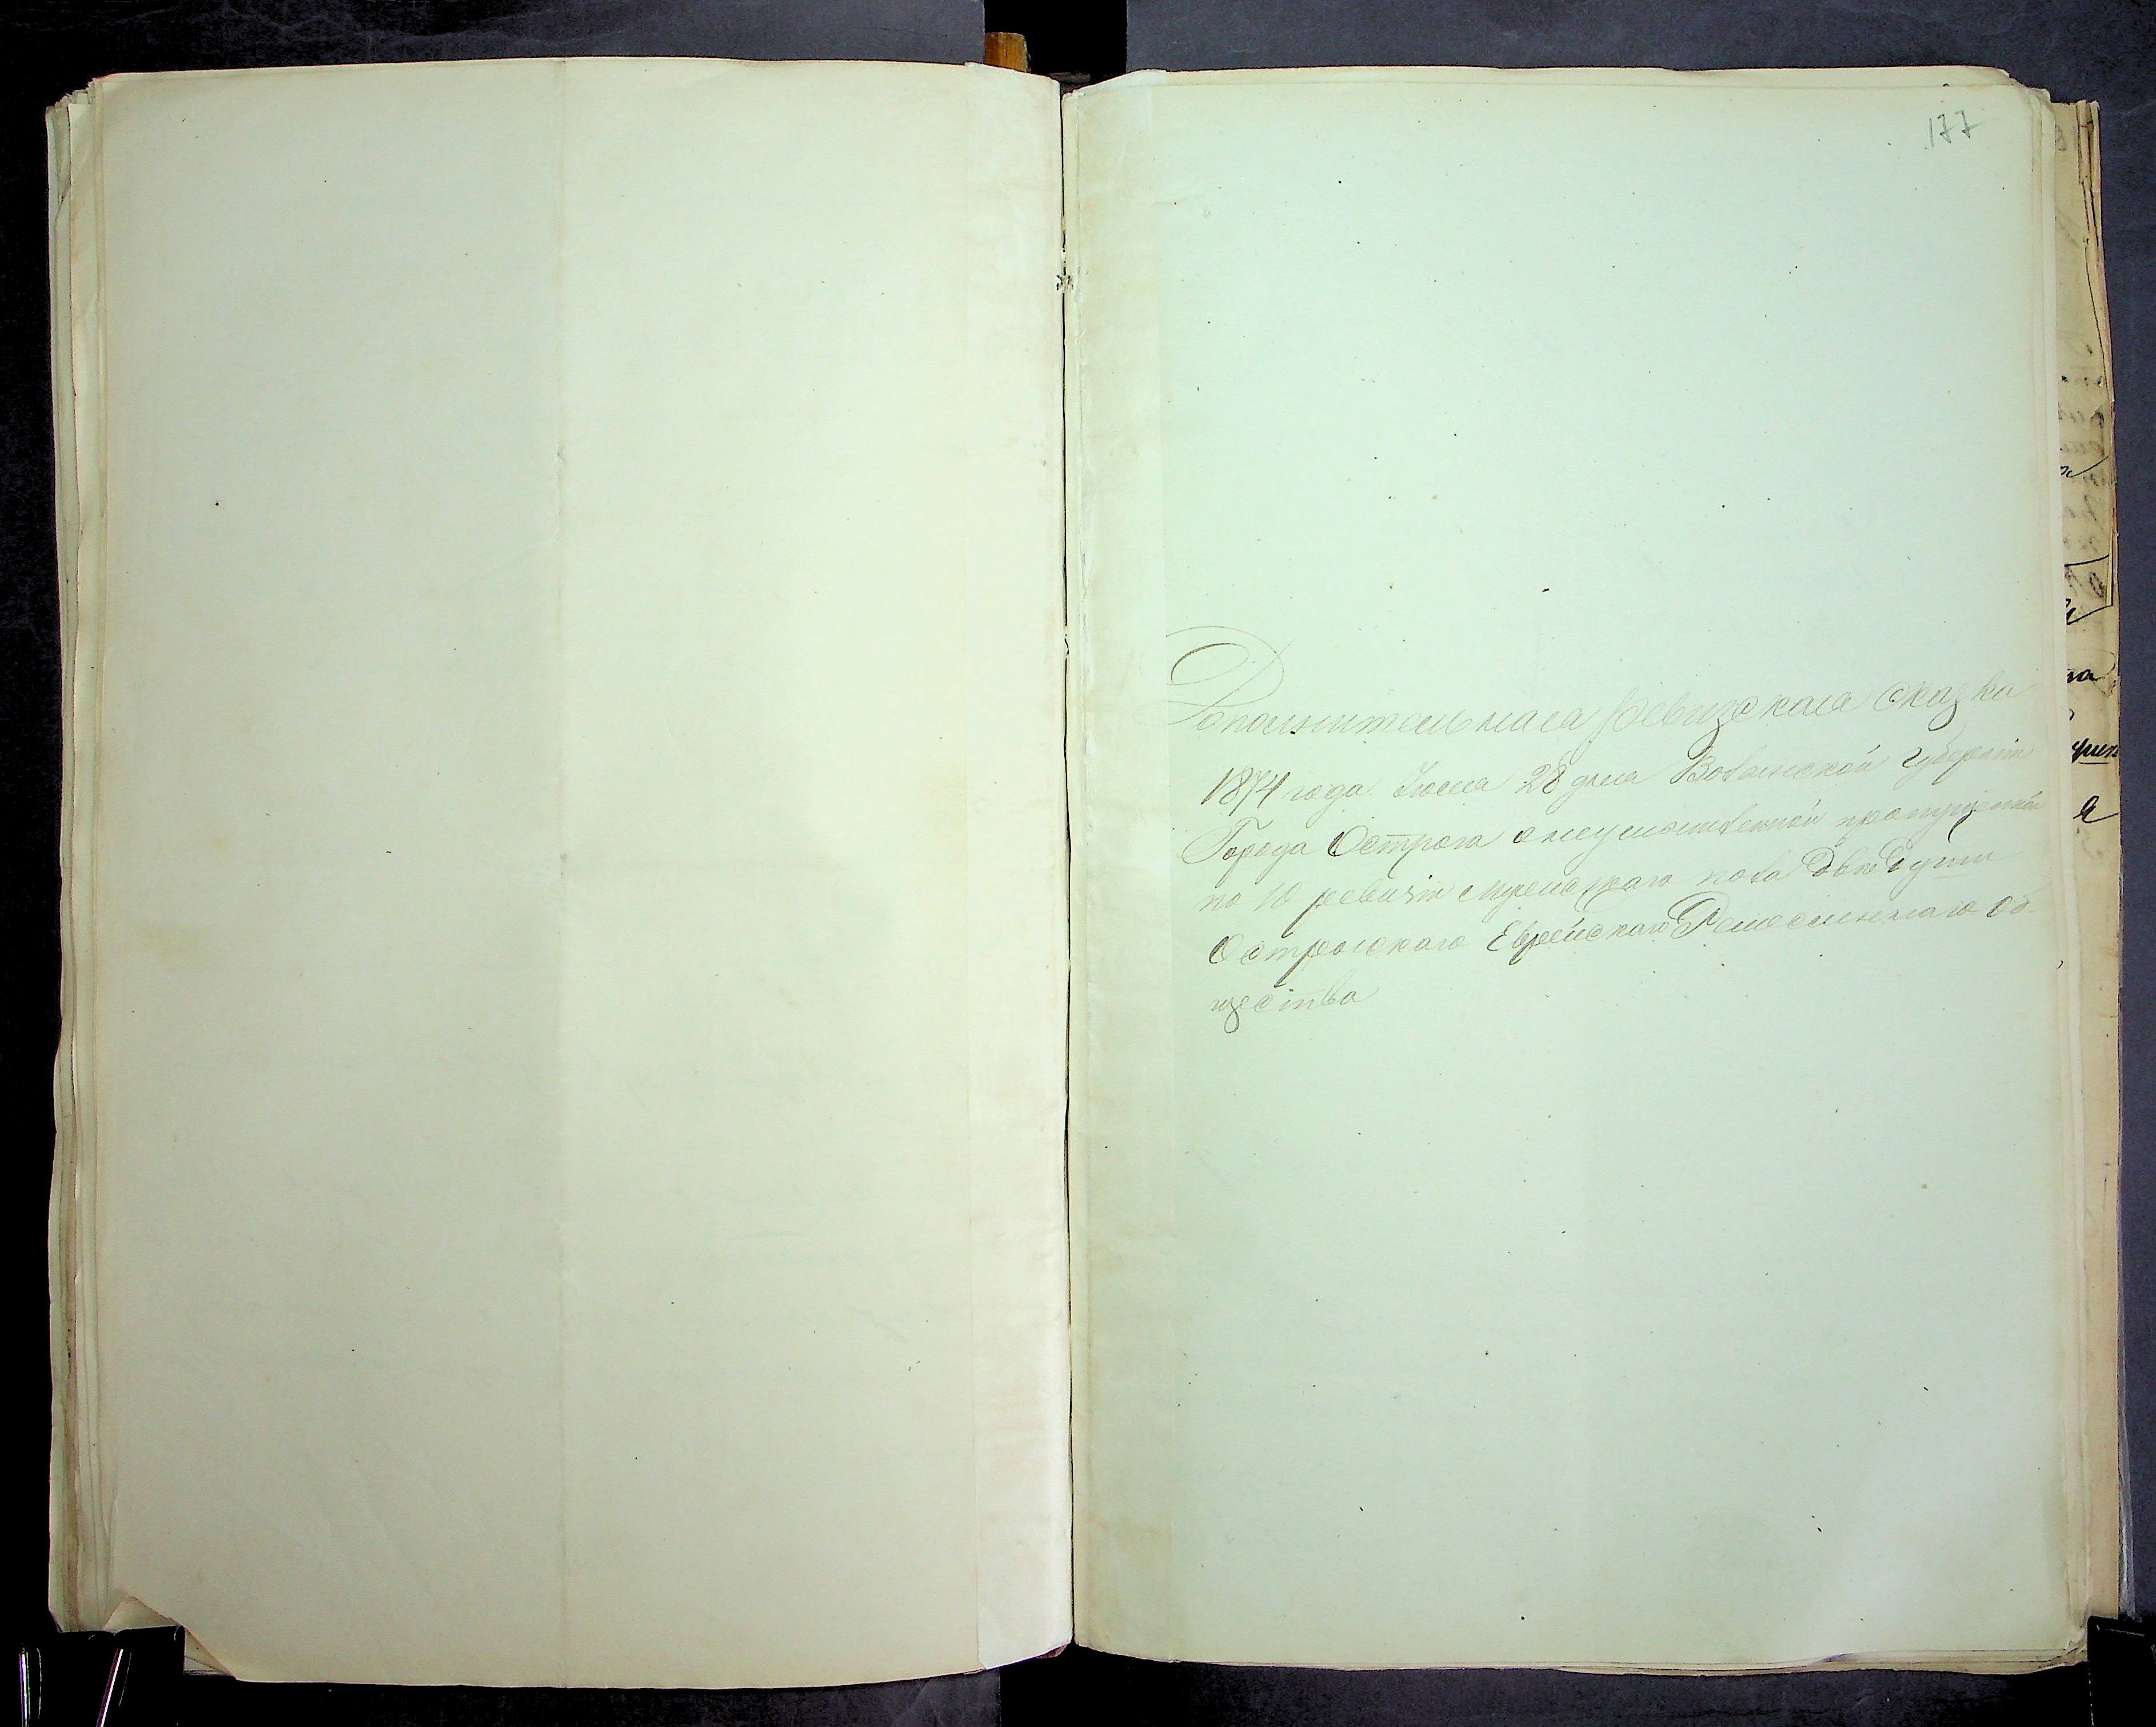 177
Дополнительная Ревизская сказка
1874 года Июня 28 дня Волынской губерніи
Города Острога о неумышленной пропущенной
по 10 ревизіи мужескаго пола двѣ души
Острогскаго Еврейскаго Ремесленнаго об-
щества